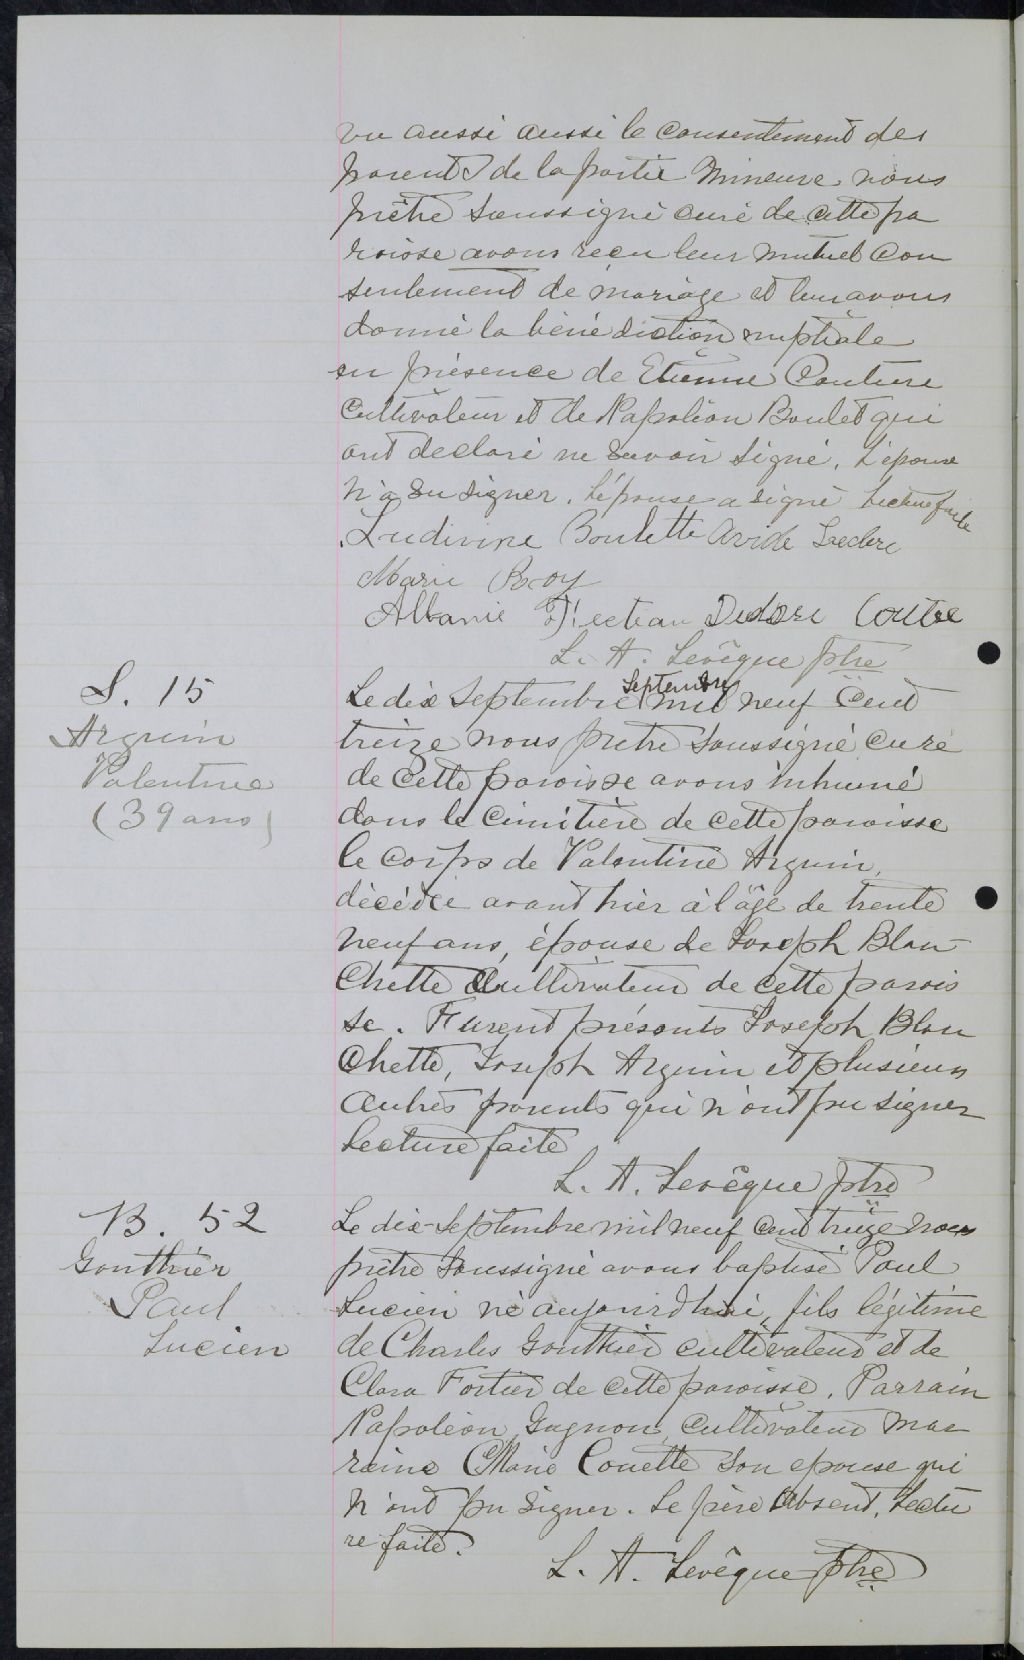 vu aussi aussi le consentement des
parents de la partie mineure nous
prêtre soussigné curé de cette pa
roisse avons reçu leur mutuel con
sentement de mariage et leur avons
donné la bénédiction nuptiale
en présence de Etienne Couture
cultivateur et de Napoléon Boulet qui
ont declaré ne savoir signé. L'époux
n'a su signer. L'épouse a signé Lecture faite
Ludivine Boulette Avide Leclerc
Marie Roy
Albanie Didore Coutre
L. A. Levêque ptre
S. 15
Arguin
Valentine
(39 ans)
Le dix Septembre Septembre mil neuf Cent
treize nous prêtre soussigné curé
de cette paroisse avons inhumé
dans le cimitière de cette paroisse
le corps de Valentine Arguin,
décédée avant hier à l'âge de trente
neuf ans, épouse de Joseph Blan-
chette Cultivateur de cette parois
se. Furent présents Joseph Blan
chette, Joseph Arguin et plusieurs
autres parents qui n'ont pu signer
Lecture faite
L. A. Levêque ptre
B. 52
Gonthier
Paul
Lucien
Le dix-Septembre mil neuf cent treize nous
prêtre soussigné avons baptisé Paul
Lucien né aujourd'hui, fils légitime
de Charles Gonthier cultivateur et de
Clara Fortier de cette paroisse. Parrain
Napoléon Gagnon, cultivateur mar
raine Marie Couette son epouse qui
n'ont pu signer. Le père absent. Lectu
re faite.
L. A. Levêque ptre